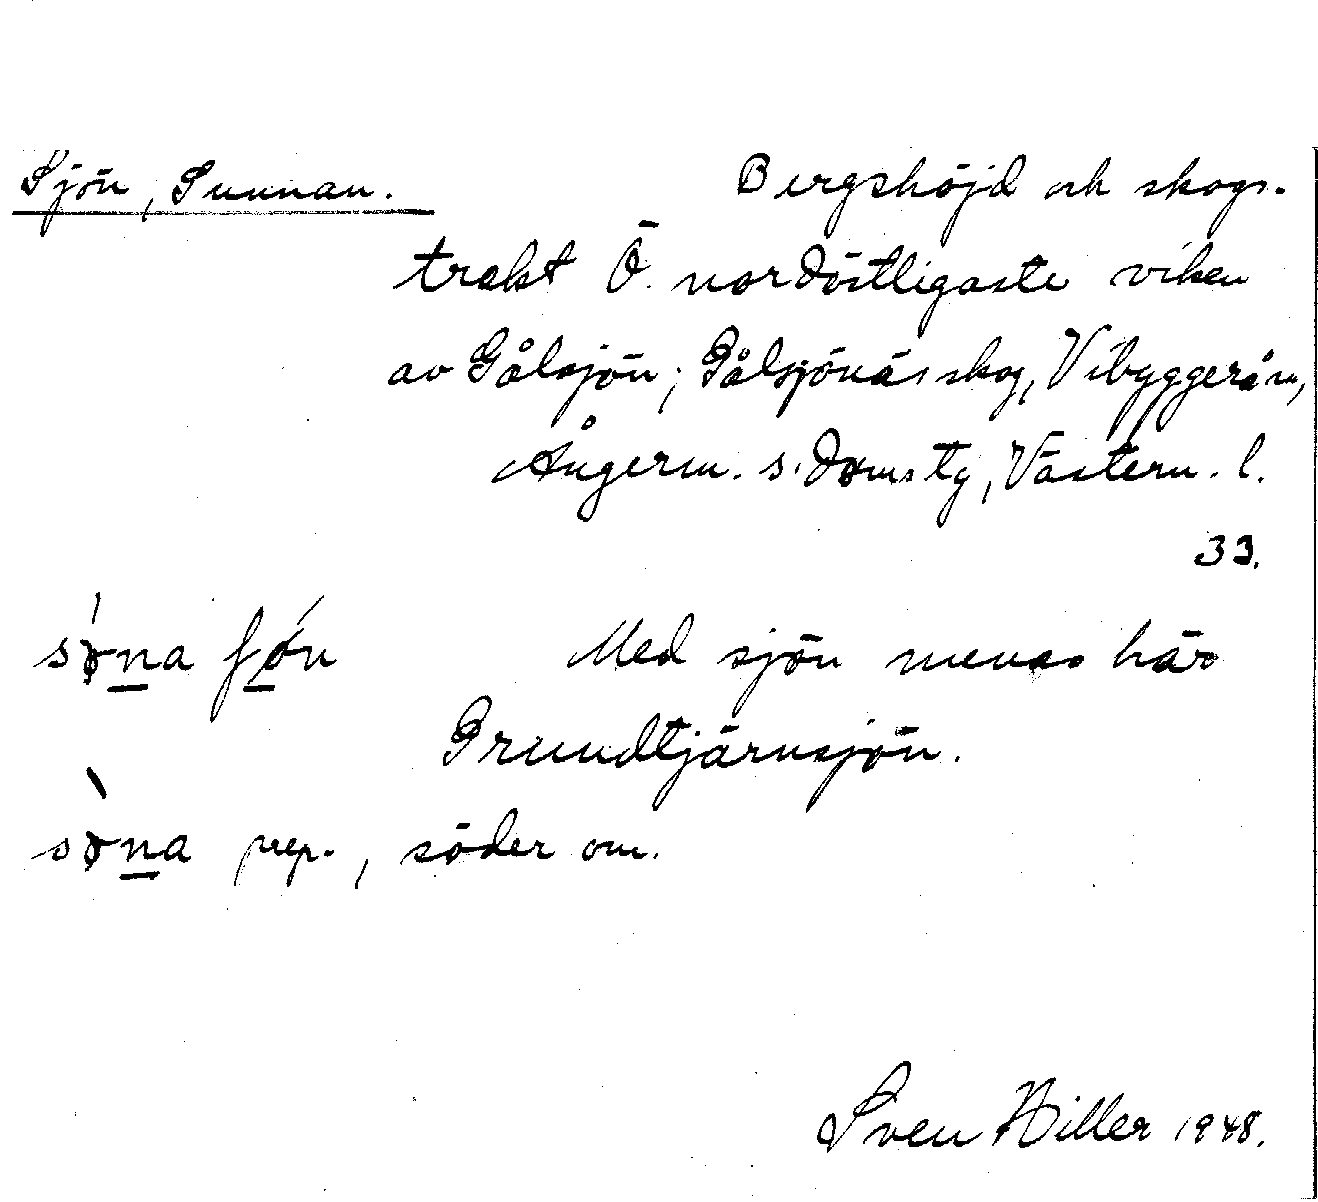 Sjön, Sunnan. Bergshöjd och skogs-
trakt Ö. nordöstligaste viken
av Gålsjön; Gålsjönäs skog, Vibyggerå sn,
Ångerm. s. doms. tg, Västern. l.
33.
Med sjön menas här
Grundtjärnsjön.
prep., söder om.
Sven Hiller 1948.